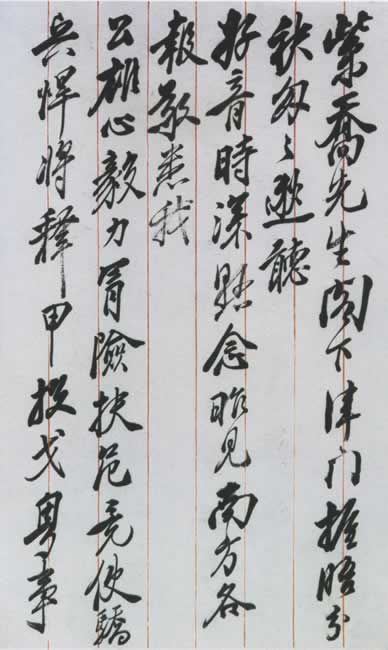 紫喬先生閣下津门握晤分
袂匆々逖聽
好音時深懸念昨見南方各
報敬悉我
公雄心毅力冒險扶危竟使驕
兵悍將釋甲投戈粤事